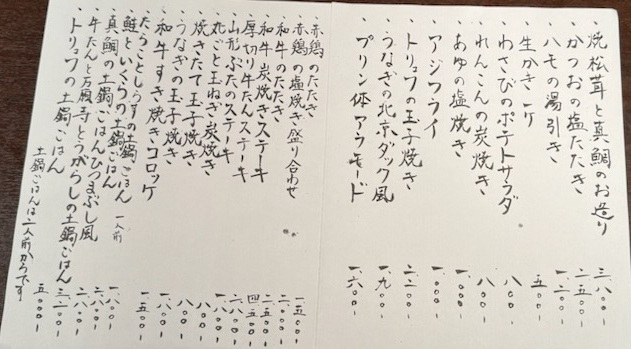 ・焼松茸と真鯛のお造り 三八〇〇-
・かつおの塩たたき 二五〇〇-
・ハモの湯引き 一二〇〇-
・生かき一ケ
・わさびのポテトサラダ 八〇〇-
・れんこんの炭焼き 八〇〇-
・あゆの塩焼き 一〇〇〇-
・アジフライ 一〇〇〇-
・トリュフの玉子焼き 二二〇〇-
・うなぎの北京ダック風 一九〇〇-
・プリン体アラモード 一六〇〇-
・赤鶏のたたき 一五〇〇-
・赤鶏の塩焼き盛り合わせ
・和牛のたたき
・和牛炭焼きステーキ
・厚切り牛たんステーキ 四五〇〇-
・山形ぶたのステーキ
・丸ごと玉ねぎ炭焼き
・焼きたて玉子焼き
・うなぎの玉子焼き
・和牛すき焼きコロッケ
・たらことしらすの土鍋ごはん 一人前
・鮭といくらの土鍋ごはん
・真鯛の土鍋ごはんひつまぶし風
・牛たんと万願寺とうがらしの土鍋ごはん
・トリュフの土鍋ごはん 五〇〇〇-
土鍋ごはんは二人前からです